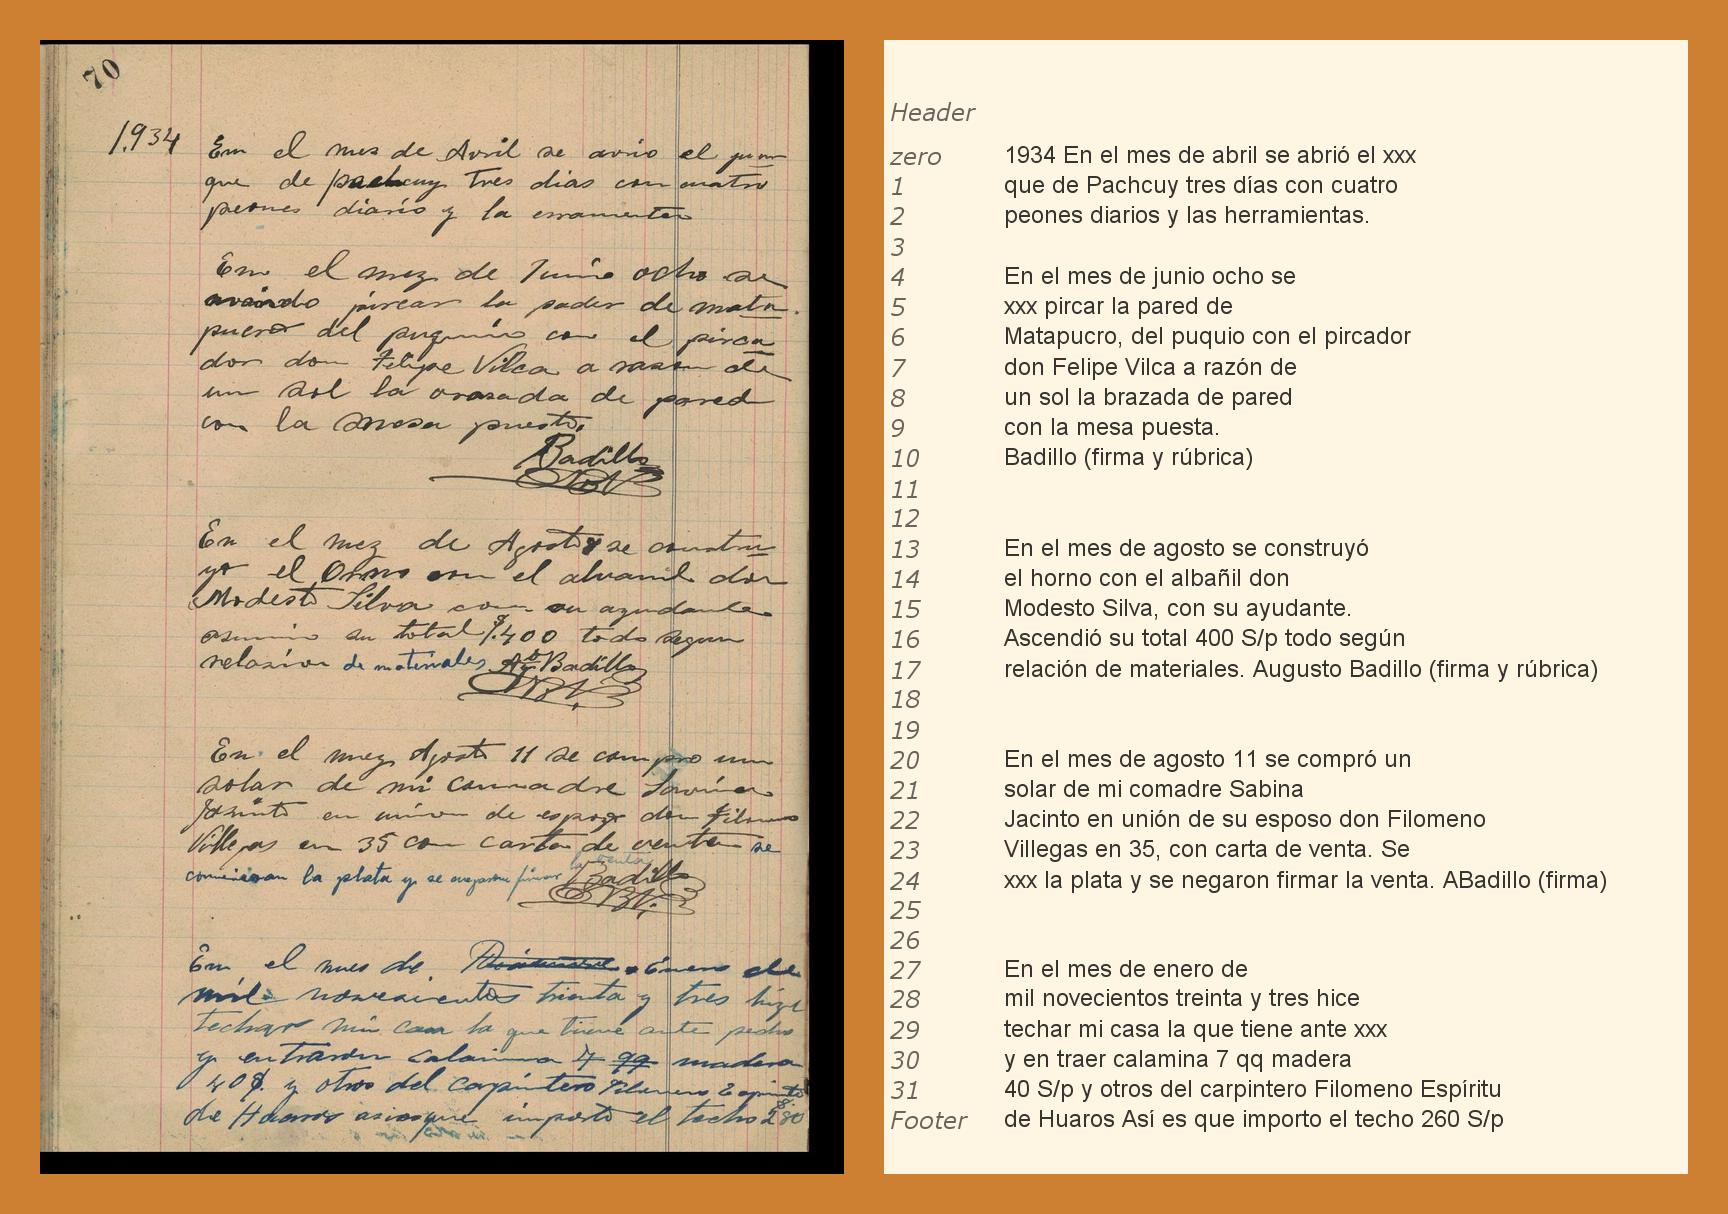 70
1934 En el mes de Avril se avrio el
que de pachcuy tres dias con cuatro
peones diario y la erramienta
En el mez de Junio ocho se
pircar la pader de mata
pucro del puquio con el pirca
dor don Felipe Vilca a rason de
un sol la brasada de pared
con la mesa puesto.
Badillo
En el mez de Agosto se constru
yo el Orno con el alvanil don
Modesto Silva con su ayudante
su total $.400 todo segun
relasion de materiales Agto Badillo
En el mez Agosto 11 se compro un
solar de mi comadre Savina
Jasinto en union de esposo don Filomeno
Villegas en 35 con carta de venta se
la plata y se negaron firmar la venta Badillo
En el mes de Enero de
mil novesientos trienta y tres hize
techar mi casa la que tiene ante
y entraron calamina 7 qq madera
40$. y otros del carpintero Filomeno Espiritu
de Huaros asies que importo el techo
Header
zero 1934 En el mes de abril se abrió el xxx
1 que de Pachcuy tres días con cuatro
2 peones diarios y las herramientas.
3
4 En el mes de junio ocho se
5 xxx pircar la pared de
6 Matapucro, del puquio con el pircador
7 don Felipe Vilca a razón de
8 un sol la brazada de pared
9 con la mesa puesta.
10 Badillo (firma y rúbrica)
11
12
13 En el mes de agosto se construyó
14 el horno con el albañil don
15 Modesto Silva, con su ayudante.
16 Ascendió su total 400 S/p todo según
17 relación de materiales. Augusto Badillo (firma y rúbrica)
18
19
20 En el mes de agosto 11 se compró un
21 solar de mi comadre Sabina
22 Jacinto en unión de su esposo don Filomeno
23 Villegas en 35, con carta de venta. Se
24 xxx la plata y se negaron firmar la venta. ABadillo (firma)
25
26
27 En el mes de enero de
28 mil novecientos treinta y tres hice
29 techar mi casa la que tiene ante xxx
30 y en traer calamina 7 qq madera
31 40 S/p y otros del carpintero Filomeno Espíritu
Footer de Huaros Así es que importo el techo 260 S/p